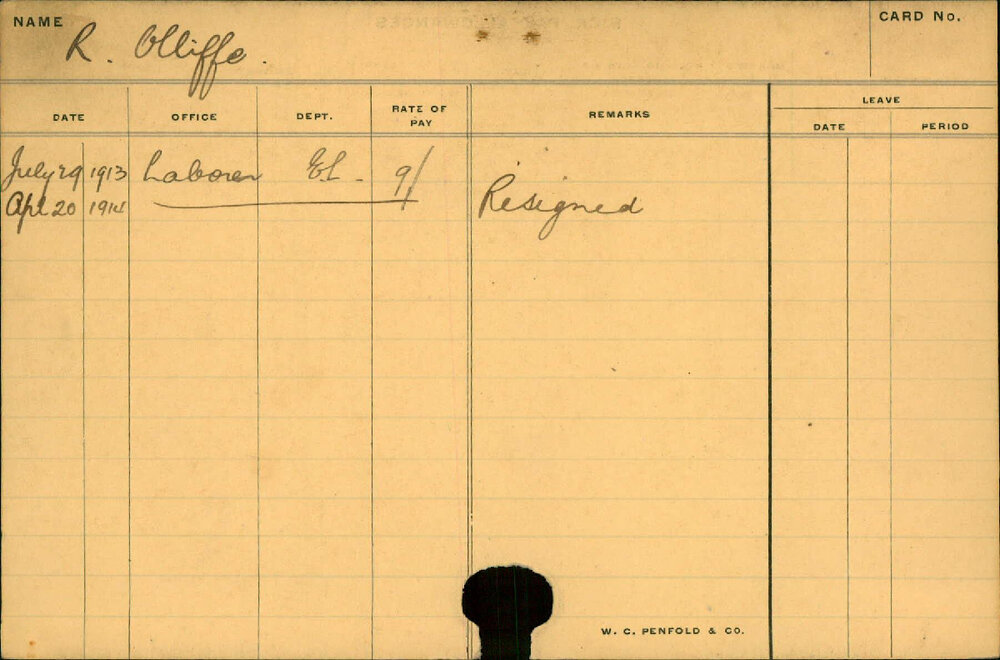 NAME R. Olliffe. CARD No.
DATE OFFICE DEPT. RATE OF PAY REMARKS LEAVE
DATE PERIOD
July 29 1913 Laborer EL. 9/
Apl 20 1914 Resigned
W. C. PENFOLD & CO.